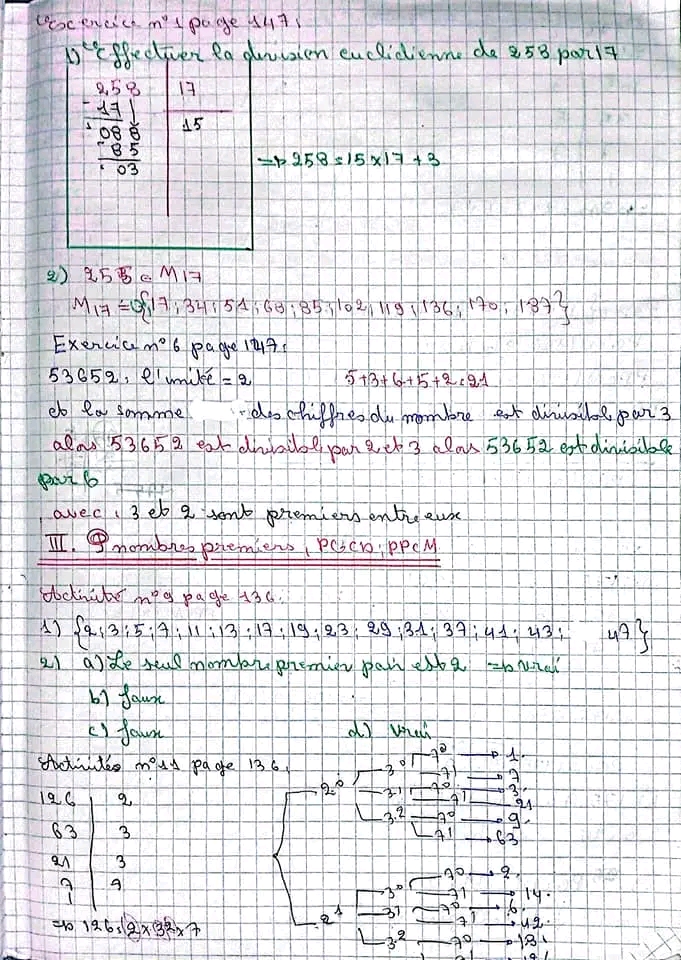 Exercice n°1 page 147:
1) Effectuer la division euclidienne de 258 par 17
258 | 17
-171 | 15
088
-85
03
=> 258 = 15 x 17 + 3
2) 255 ∈ M17
M17 = {17; 34; 51; 68; 85; 102; 119; 136; 170; 187}
Exercice n°6 page 147:
53652: l'unité = 2 5+3+6+5+2=21
et la somme des chiffres du nombre est divisible par 3
alors 53652 est divisible par 2 et 3 alors 53652 est divisible
par 6
avec: 3 et 2 sont premiers entre eux
III. nombres premiers, PGCD; PPCM
Activité n°9 page 136.
1) {2; 3; 5; 7; 11; 13; 17; 19; 23; 29; 31; 37; 41; 43; 47}
2) a) Le seul nombre premier pair est 2 => vrai
b) faux
c) faux d) vrai
Activités n°11 page 136.
126 | 2
63 | 3
21 | 3
7 | 7
1
=> 126 = 2 x 3² x 7
2⁰ 3⁰ 7⁰ → 1.
7¹ → 7
3¹ 7⁰ → 3.
7¹ → 21
3² 7⁰ → 9.
7¹ → 63
2¹ 3⁰ 7⁰ → 2.
7¹ → 14.
3¹ 7⁰ → 6.
7¹ → 42.
3² 7⁰ → 18.